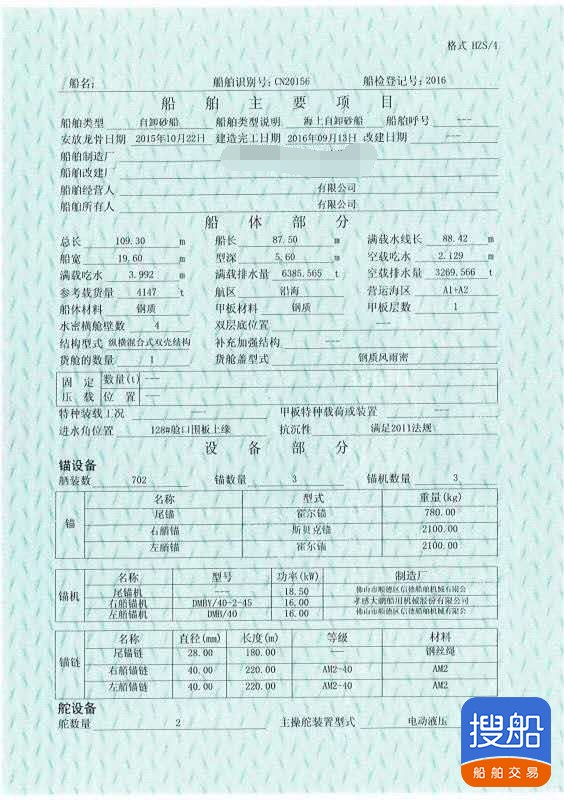 格式 HZS/4
船名: 船舶识别号: CN20156 船检登记号: 2016
船舶主要项目
船舶类型 自卸砂船 船舶类型说明 海上自卸砂船 船舶呼号 ---
安放龙骨日期 2015年10月22日 建造完工日期 2016年09月13日 改建日期 ---
船舶制造厂
船舶改建厂
船舶经营人 有限公司
船舶所有人 有限公司
船体部分
总长 109.30 m 船长 87.50 m 满载水线长 88.42 m
船宽 19.60 m 型深 5.60 m 空载吃水 2.129 m
满载吃水 3.992 m 满载排水量 6385.565 t 空载排水量 3269.566 t
参考载货量 4147 t 航区 沿海 营运海区 A1+A2
船体材料 钢质 甲板材料 钢质 甲板层数 1
水密横舱壁数 4 双层底位置 ---
结构型式 纵横混合式双壳结构 补充加强结构 ---
货舱的数量 1 货舱盖型式 钢质风雨密
固定压载 数量(t) ---
位置 ---
特种装载工况 --- 甲板特种载荷或装置 ---
进水角位置 128#舱口围板上缘 抗沉性 满足2011法规
设备部分
锚设备
舾装数 702 锚数量 3 锚机数量 3
锚 名称 型式 重量(kg)
尾锚 霍尔锚 780.00
右艏锚 斯贝克锚 2100.00
左艏锚 霍尔锚 2100.00
锚机 名称 型号 功率(kW) 制造厂
尾锚机 --- 18.50 佛山市顺德区信德船舶机械有限公
右艏锚机 DMBY/40-2-45 16.00 孝感大鹏船用机械股份有限公司
左艏锚机 DMB/40 16.00 佛山市顺德区信德船舶机械有限公
锚链 名称 直径(mm) 长度(m) 等级 材料
尾锚链 28.00 180.00 --- 钢丝绳
右艏锚链 40.00 220.00 AM2-40 AM2
左艏锚链 40.00 220.00 AM2-40 AM2
舵设备
舵数量 2 主操舵装置型式 电动液压
搜船
船舶交易